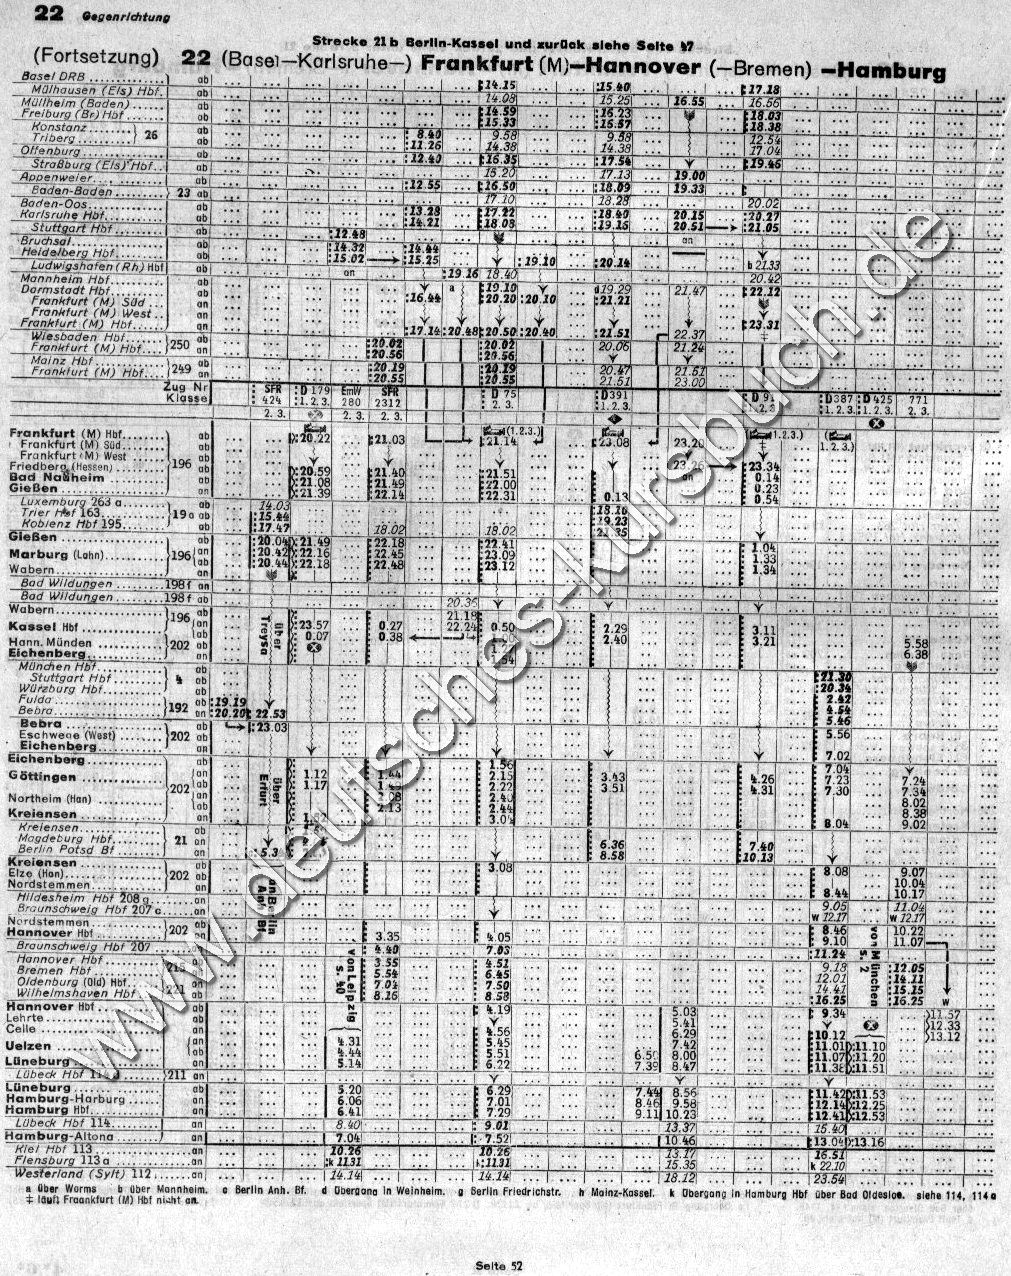 22 Gegenrichtung
Strecke 21b Berlin-Kassel und zurück siehe Seite 47
(Fortsetzung) 22 (Basel—Karlsruhe—) Frankfurt (M)—Hannover (—Bremen) —Hamburg
Basel DRB ab 14.15 15.40 17.18
Mülhausen (Els) Hbf. ab 14.08 15.25 16.56
Müllheim (Baden) ab 14.59 16.23 16.55 18.03
Freiburg (Br) Hbf ab 15.33 16.57 18.38
Konstanz 26 ab 8.40 9.58 9.58 12.54
Triberg ab 11.26 14.38 14.38 17.04
Offenburg ab 12.40 16.35 17.54 19.46
Straßburg (Els) Hbf. ab 15.20 17.13 19.00
Appenweier ab 12.55 16.50 18.09 19.33
Baden-Baden 23 ab 17.10 18.28 20.02
Baden-Oos ab 13.28 17.22 18.40 20.15 20.27
Karlsruhe Hbf ab 14.21 18.08 19.15 20.51 21.05
Stuttgart Hbf ab 12.48 an
Bruchsal ab 14.32 14.44
Heidelberg Hbf. ab 15.02 15.25 19.10 20.14
Ludwigshafen (Rh) Hbf ab an 19.16 18.40 b 21.33
Mannheim Hbf. ab a 20.42
Darmstadt Hbf ab 19.10 d19.29 21.47 22.12
Frankfurt (M) Süd an 16.44 20.20 20.10 21.21
Frankfurt (M) West an
Frankfurt (M) Hbf. an 17.14 20.48 20.50 20.40 21.51 22.37 23.31
Wiesbaden Hbf 250 ab 20.02 20.02 20.06 21.24
Frankfurt (M) Hbf. an 20.56 20.56
Mainz Hbf 249 ab 20.19 20.19 20.47 21.51
Frankfurt (M) Hbf. an 20.55 20.55 21.51 23.00
Zug Nr SFR D 179 EmW SFR D 75 D391 D 91 D387 D 425 771
Klasse 424 1.2.3. 280 2312 2.3. 1.2.3. 1.2.3. 1.2.3. 1.2.3. 2.3.
2.3. 2.3. 2.3.
Frankfurt (M) Hbf. ab 20.22 21.03 (1.2.3.) 21.14 23.08 23.20 (1.2.3.) 1.2.3.)
Frankfurt (M) Süd ab
Frankfurt (M) West ab
Friedberg (Hessen) 196 ab 20.59 21.40 21.51 23.34
Bad Nauheim ab 21.08 21.49 22.00 an 0.14
Gießen an 21.39 22.14 22.31 0.13 0.23
0.54
Luxemburg 263 a ab 14.03
Trier Hbf 163 19a ab 15.44 19.23
Koblenz Hbf 195 ab 17.47 18.02 18.02
Gießen ab 20.04 21.49 22.18 22.41 1.04
Marburg (Lahn) 196 an 20.42 22.16 22.45 23.09 1.33
Wabern ab 20.44 22.18 22.48 23.12 1.34
Bad Wildungen 198 f an
Bad Wildungen 198 f ab
Wabern 196 ab 21.18
Kassel Hbf an 23.57 0.27 22.24 0.50 2.29 3.11
Hann. Münden 202 ab 0.07 0.38 2.40 3.21 5.58
Eichenberg an 6.38
über Treysa
München Hbf ab 21.30
Stuttgart Hbf 4 ab 20.34
Würzburg Hbf ab 2.42
Fulda 192 ab 19.19 4.54
Bebra an 20.20 22.53 5.46
Bebra ab 23.03 5.56
Eschwege (West) 202 ab
Eichenberg an 7.02
Eichenberg ab 1.56 7.04
Göttingen an 1.12 2.15 3.43 4.26 7.23 7.24
202 ab 1.17 2.22 3.51 4.31 7.30 7.34
Northeim (Han) an 8.02
ab 2.13 8.38
Kreiensen an 8.04 9.02
über Erfurt
Kreiensen ab
Magdeburg Hbf. 21 an 6.36 7.40
Berlin Potsd Bf an 8.58 10.13
Kreiensen ab 3.08 8.08 9.07
Elze (Han) 202 ab 10.04
Nordstemmen an 8.44 10.17
Hildesheim Hbf 208 g an 9.05 11.04
Braunschweig Hbf 207 c an w 12.17 w 12.17
Nordstemmen 202 ab 8.46 10.22
Hannover Hbf. an 3.35 4.05 9.10 11.07
Braunschweig Hbf 207 an 4.40 7.03 11.24
an Berlin Anh Bf
Hannover Hbf ab 3.55 4.51 9.18 12.05
Bremen Hbf an 5.54 6.45 12.01 14.11
Oldenburg (Old) Hbf an 7.04 7.50 14.41 15.15
Wilhelmshaven Hbf an 8.16 8.58 16.25 16.25
von Leipzig s. 40
von München s. 2
Hannover Hbf ab 4.19 5.03 9.34 11.57
Lehrte ab 5.41 12.33
Celle ab 4.56 6.29 10.12 13.12
Uelzen an 4.31 5.45 7.42 11.01 11.10
ab 4.44 5.51 8.00 11.07 11.20
Lüneburg an 5.14 6.22 7.39 8.47 11.51
Lübeck Hbf 211 an
Lüneburg ab 5.20 6.29 7.44 8.56 11.42 11.53
Hamburg-Harburg an 6.06 7.01 8.46 9.58 12.14 12.25
Hamburg Hbf. an 6.41 7.29 9.11 10.23 12.41 12.53
Lübeck Hbf 114 an 8.40 9.01 13.37 15.40
Hamburg-Altona an 7.04 7.52 10.46 13.04 13.16
Kiel Hbf 113 an 10.26 10.26 13.17 16.51
Flensburg 113 a an k 11.31 k 11.31 15.35 k 22.10
Westerland (Sylt) 112 an 14.14 14.14 18.12 23.54
a über Worms b über Mannheim. c Berlin Anh. Bf. d Übergang in Weinheim. g Berlin Friedrichstr. h Mainz-Kassel. k Übergang in Hamburg Hbf über Bad Oldesloe. siehe 114, 114a
‡ läuft Frankfurt (M) Hbf nicht an.
Seite 52
www.deutsches-kursbuch.de